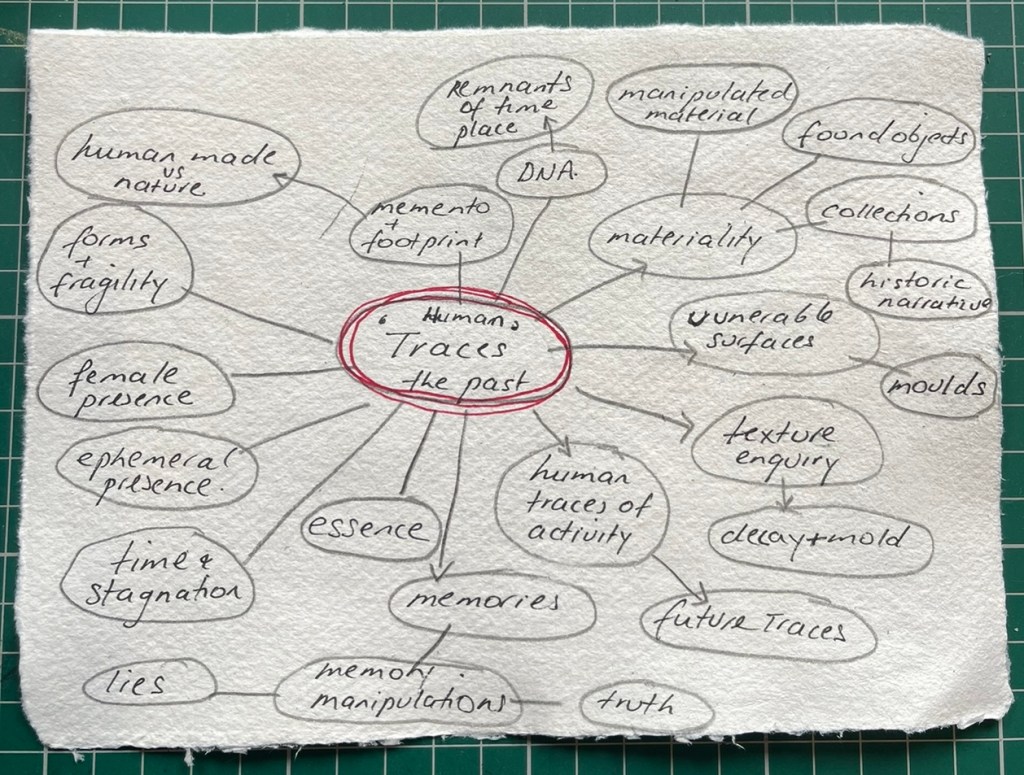 remnants
of time
place
manipulated
material
found objects
human made
vs
nature
DNA.
memento
+
footprint
materiality
collections
forms
+
fragility
historic
narrative
Human
Traces
the past
vunerable
surfaces
female
presence
moulds
texture
enquiry
ephemeral
presence.
human
traces of
activity
essence
decay+mold
time &
stagnation
memories
future Traces
manipulations
lies
truth